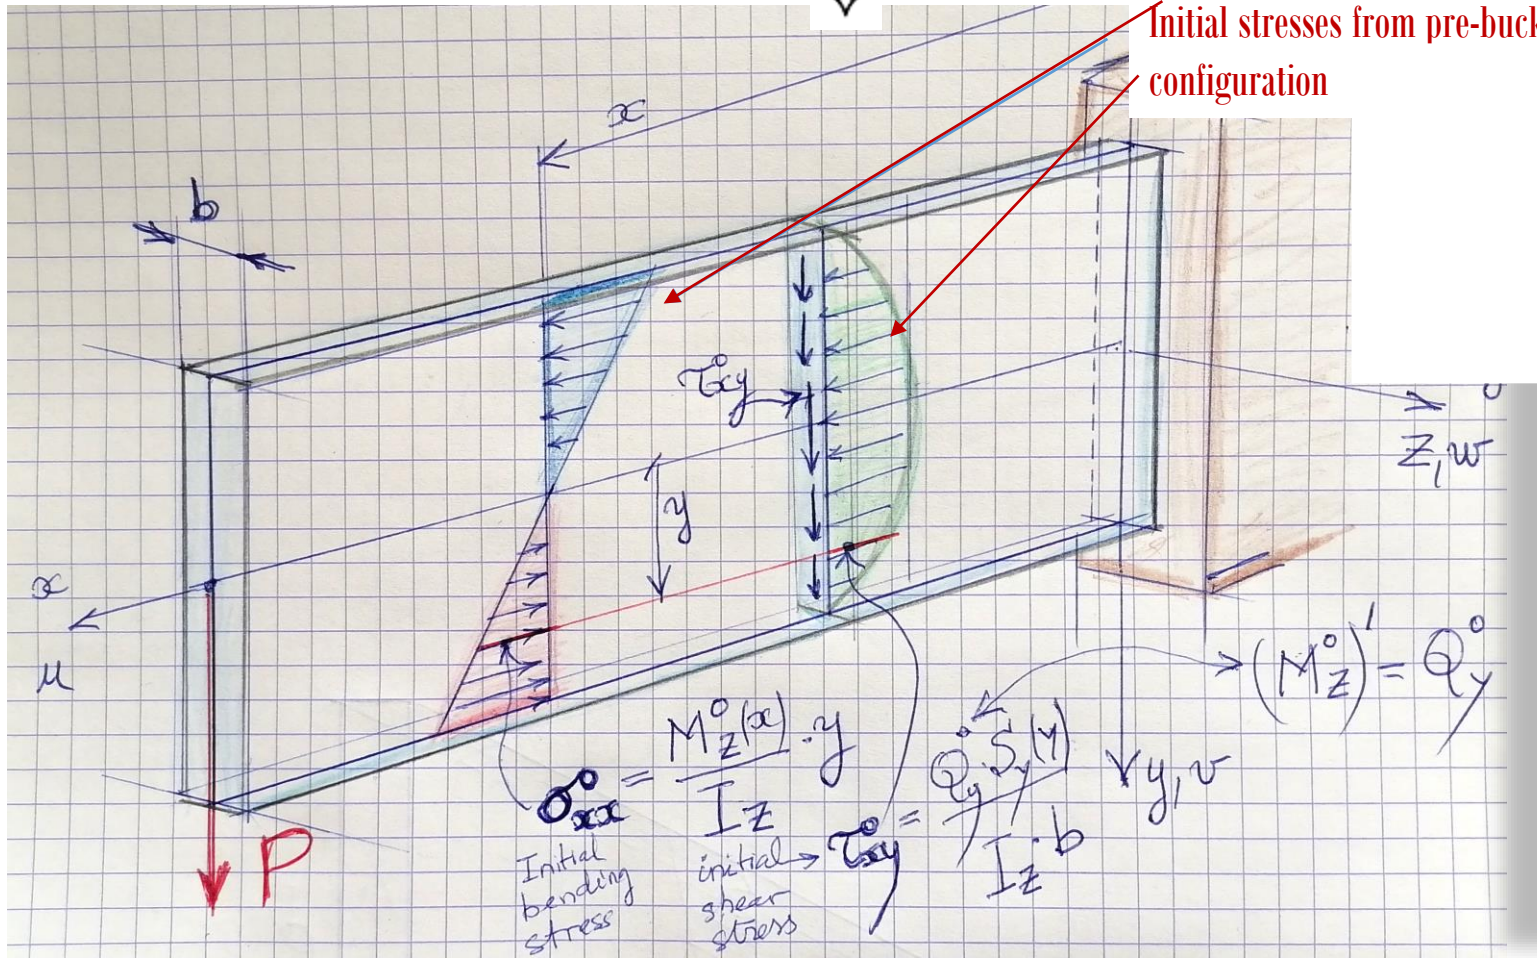 Initial stresses from pre-buck
configuration
x
b
τ°xy
y
z, w
x
u
(M°z)' = Q°y
σ°xx = M°z(x) / Iz · y
τ°xy = Q°y · Sy(y) / Iz · b
y, v
P
Initial
bending
stress
initial
shear
stress